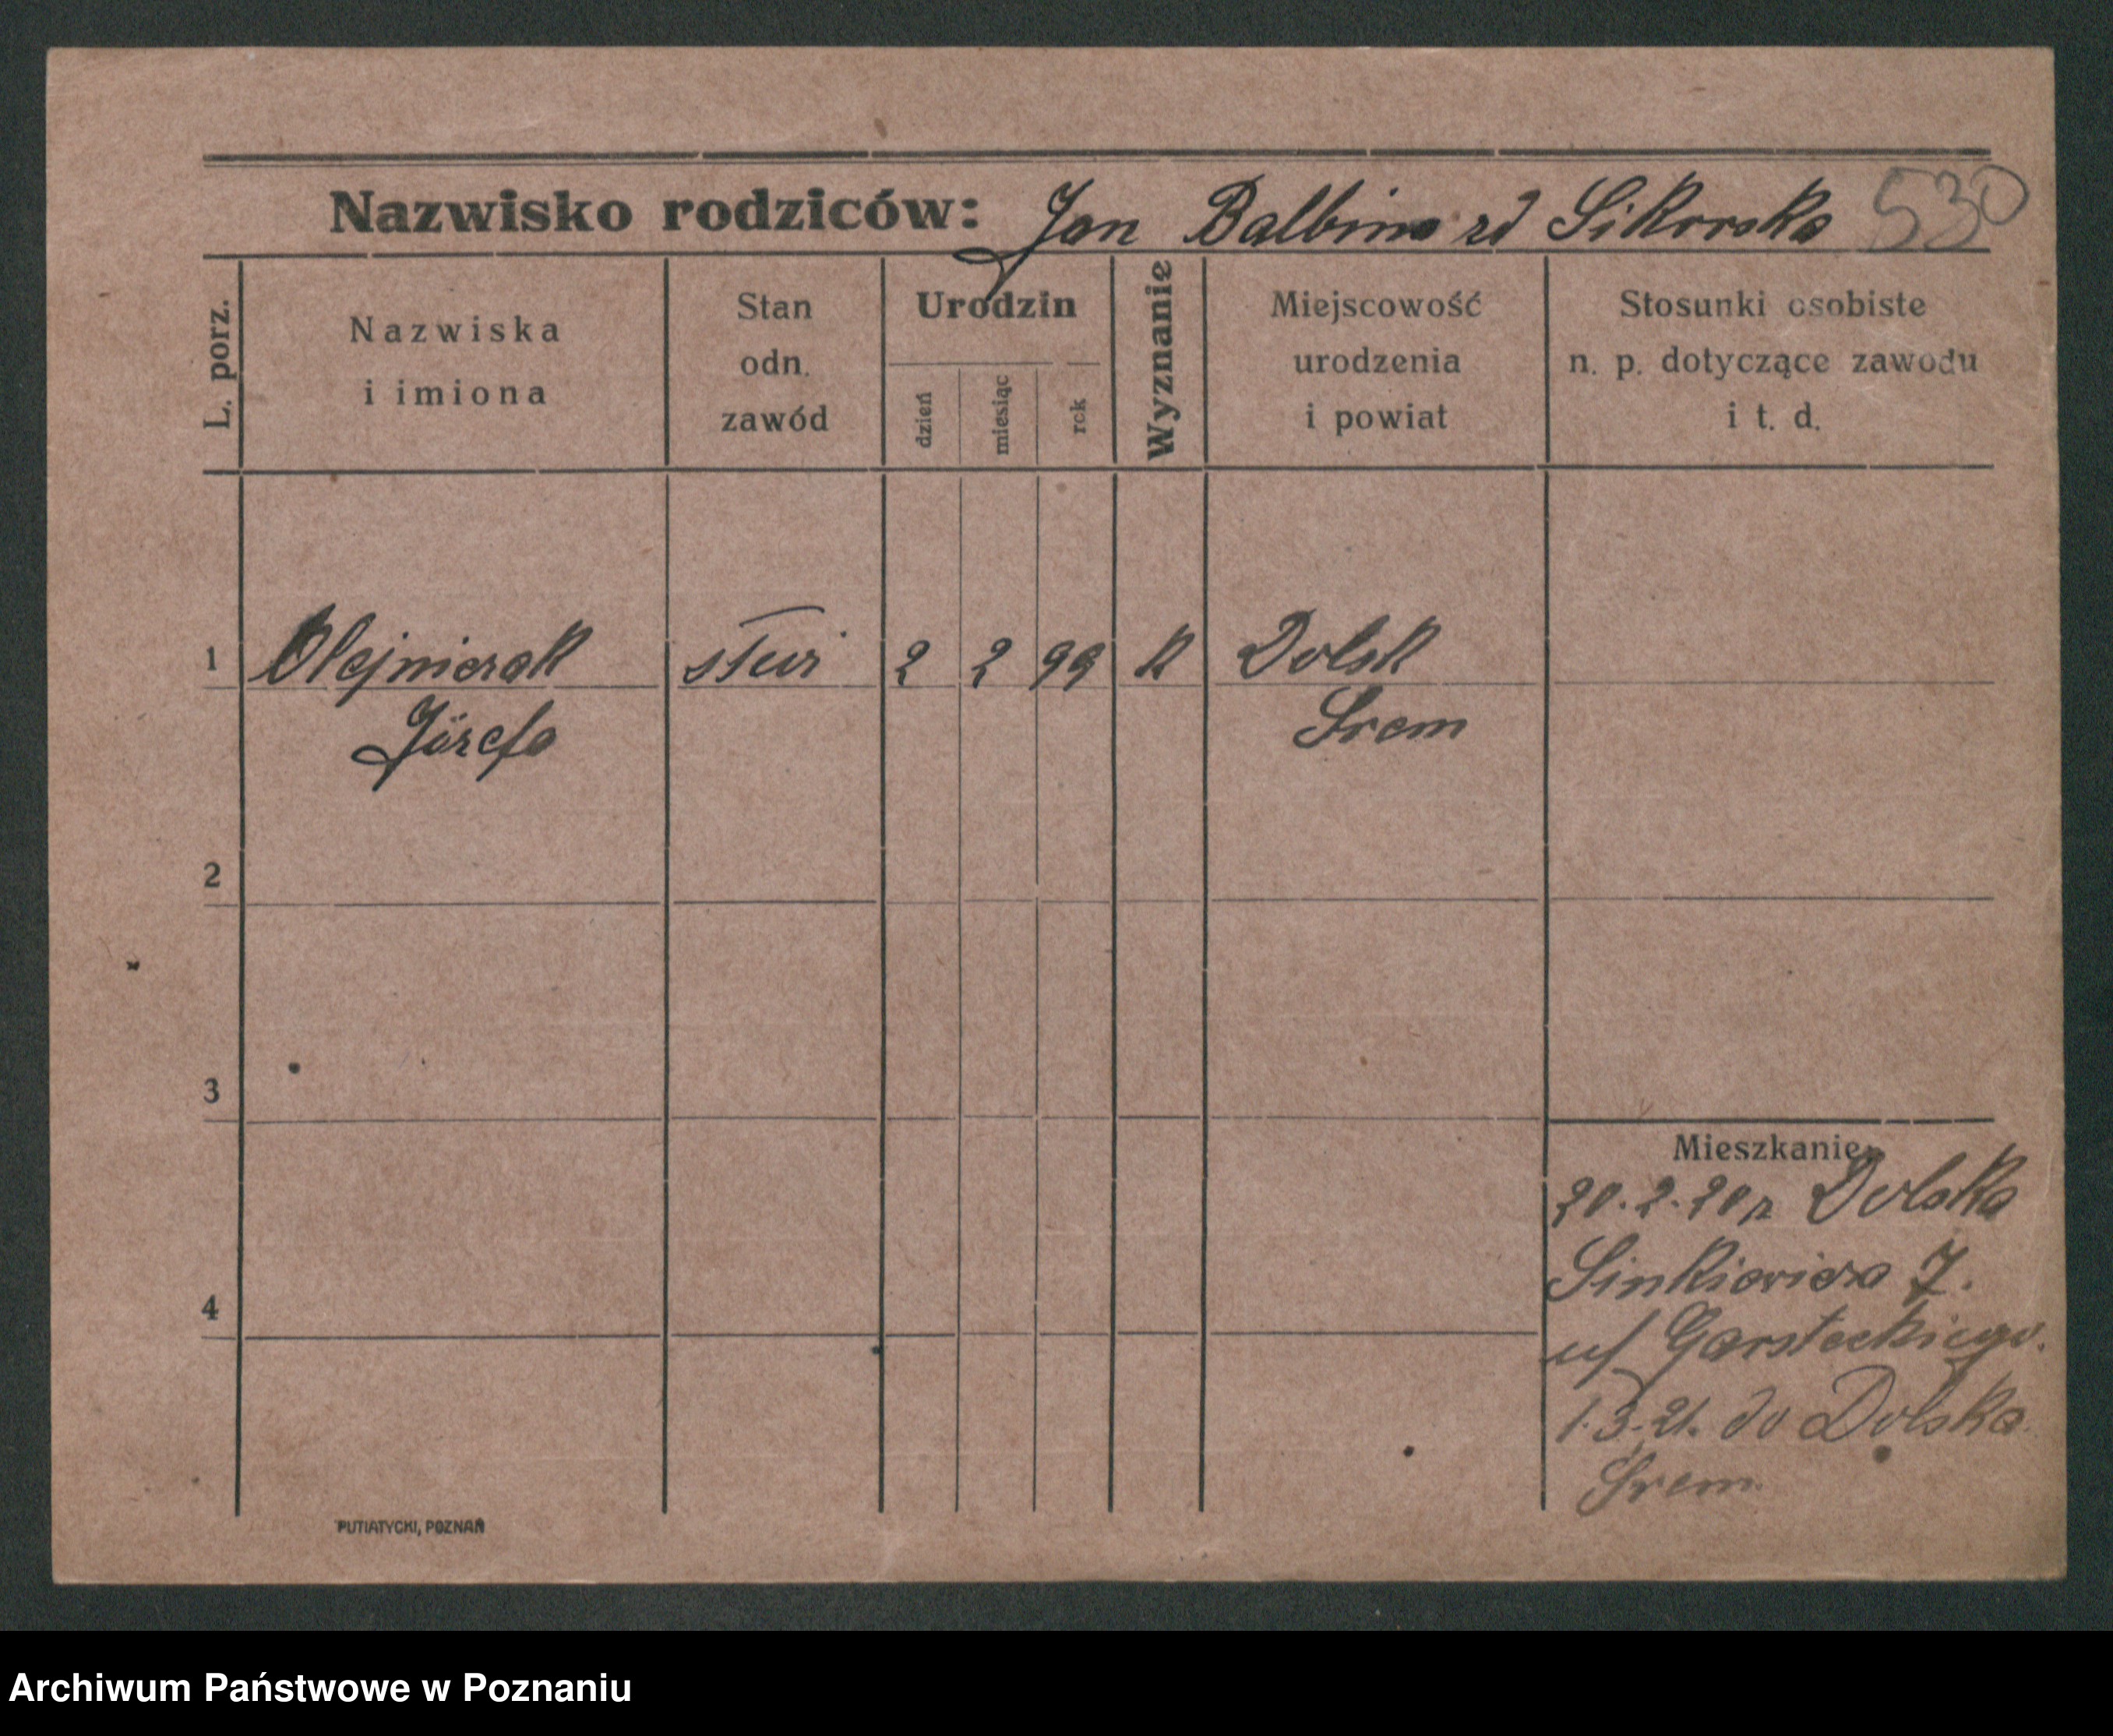 Nazwisko rodziców: Jan Balbina zd Sikorska 530
L. porz.
Nazwiska
i imiona
Stan
odn.
zawód
Urodzin
dzień
miesiąc
rok
Wyznanie
Miejscowość
urodzenia
i powiat
Stosunki osobiste
n. p. dotyczące zawodu
i t. d.
1 Olejniczak 2 2 99 k Dolsk
Józefa Śrem
2
3
Mieszkanie
20.2.20 z Dolska
Sinkiewicza 7.
4
u/ Garsteckiego.
1.3.21. do Dolska
Śrem.
PUTIATYCKI, POZNAŃ
Archiwum Państwowe w Poznaniu